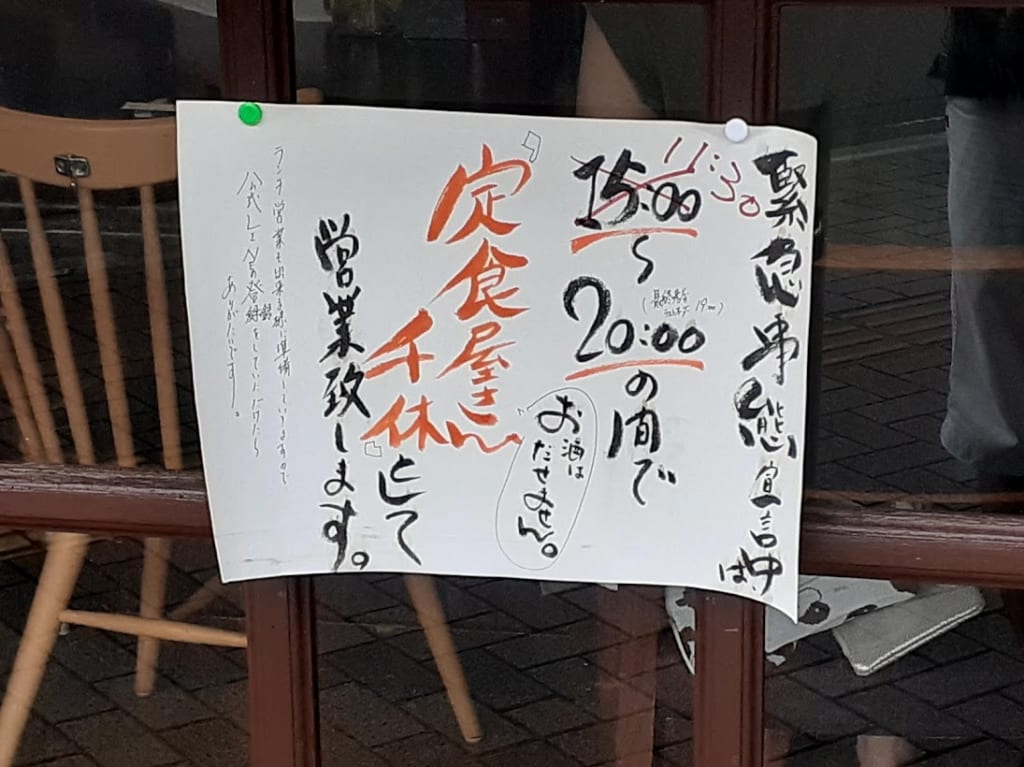 緊急事態宣言中は、
11:30
15:00〜
20:00の間で
(最終受付
ラストオーダー 19:00)
お酒は
だせません。
『定食屋さん
千休』として
営業致します。
ランチ営業も出来る様に準備していますので
公式LINE登録をしていただけたら
ありがたいです!。